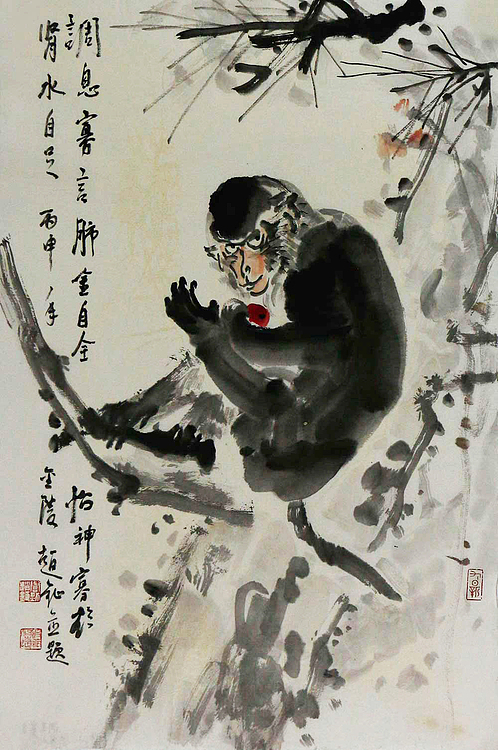 調息寡言肺金自全
怡神寡欲
腎水自足 丙申年
金陵 趙 並題